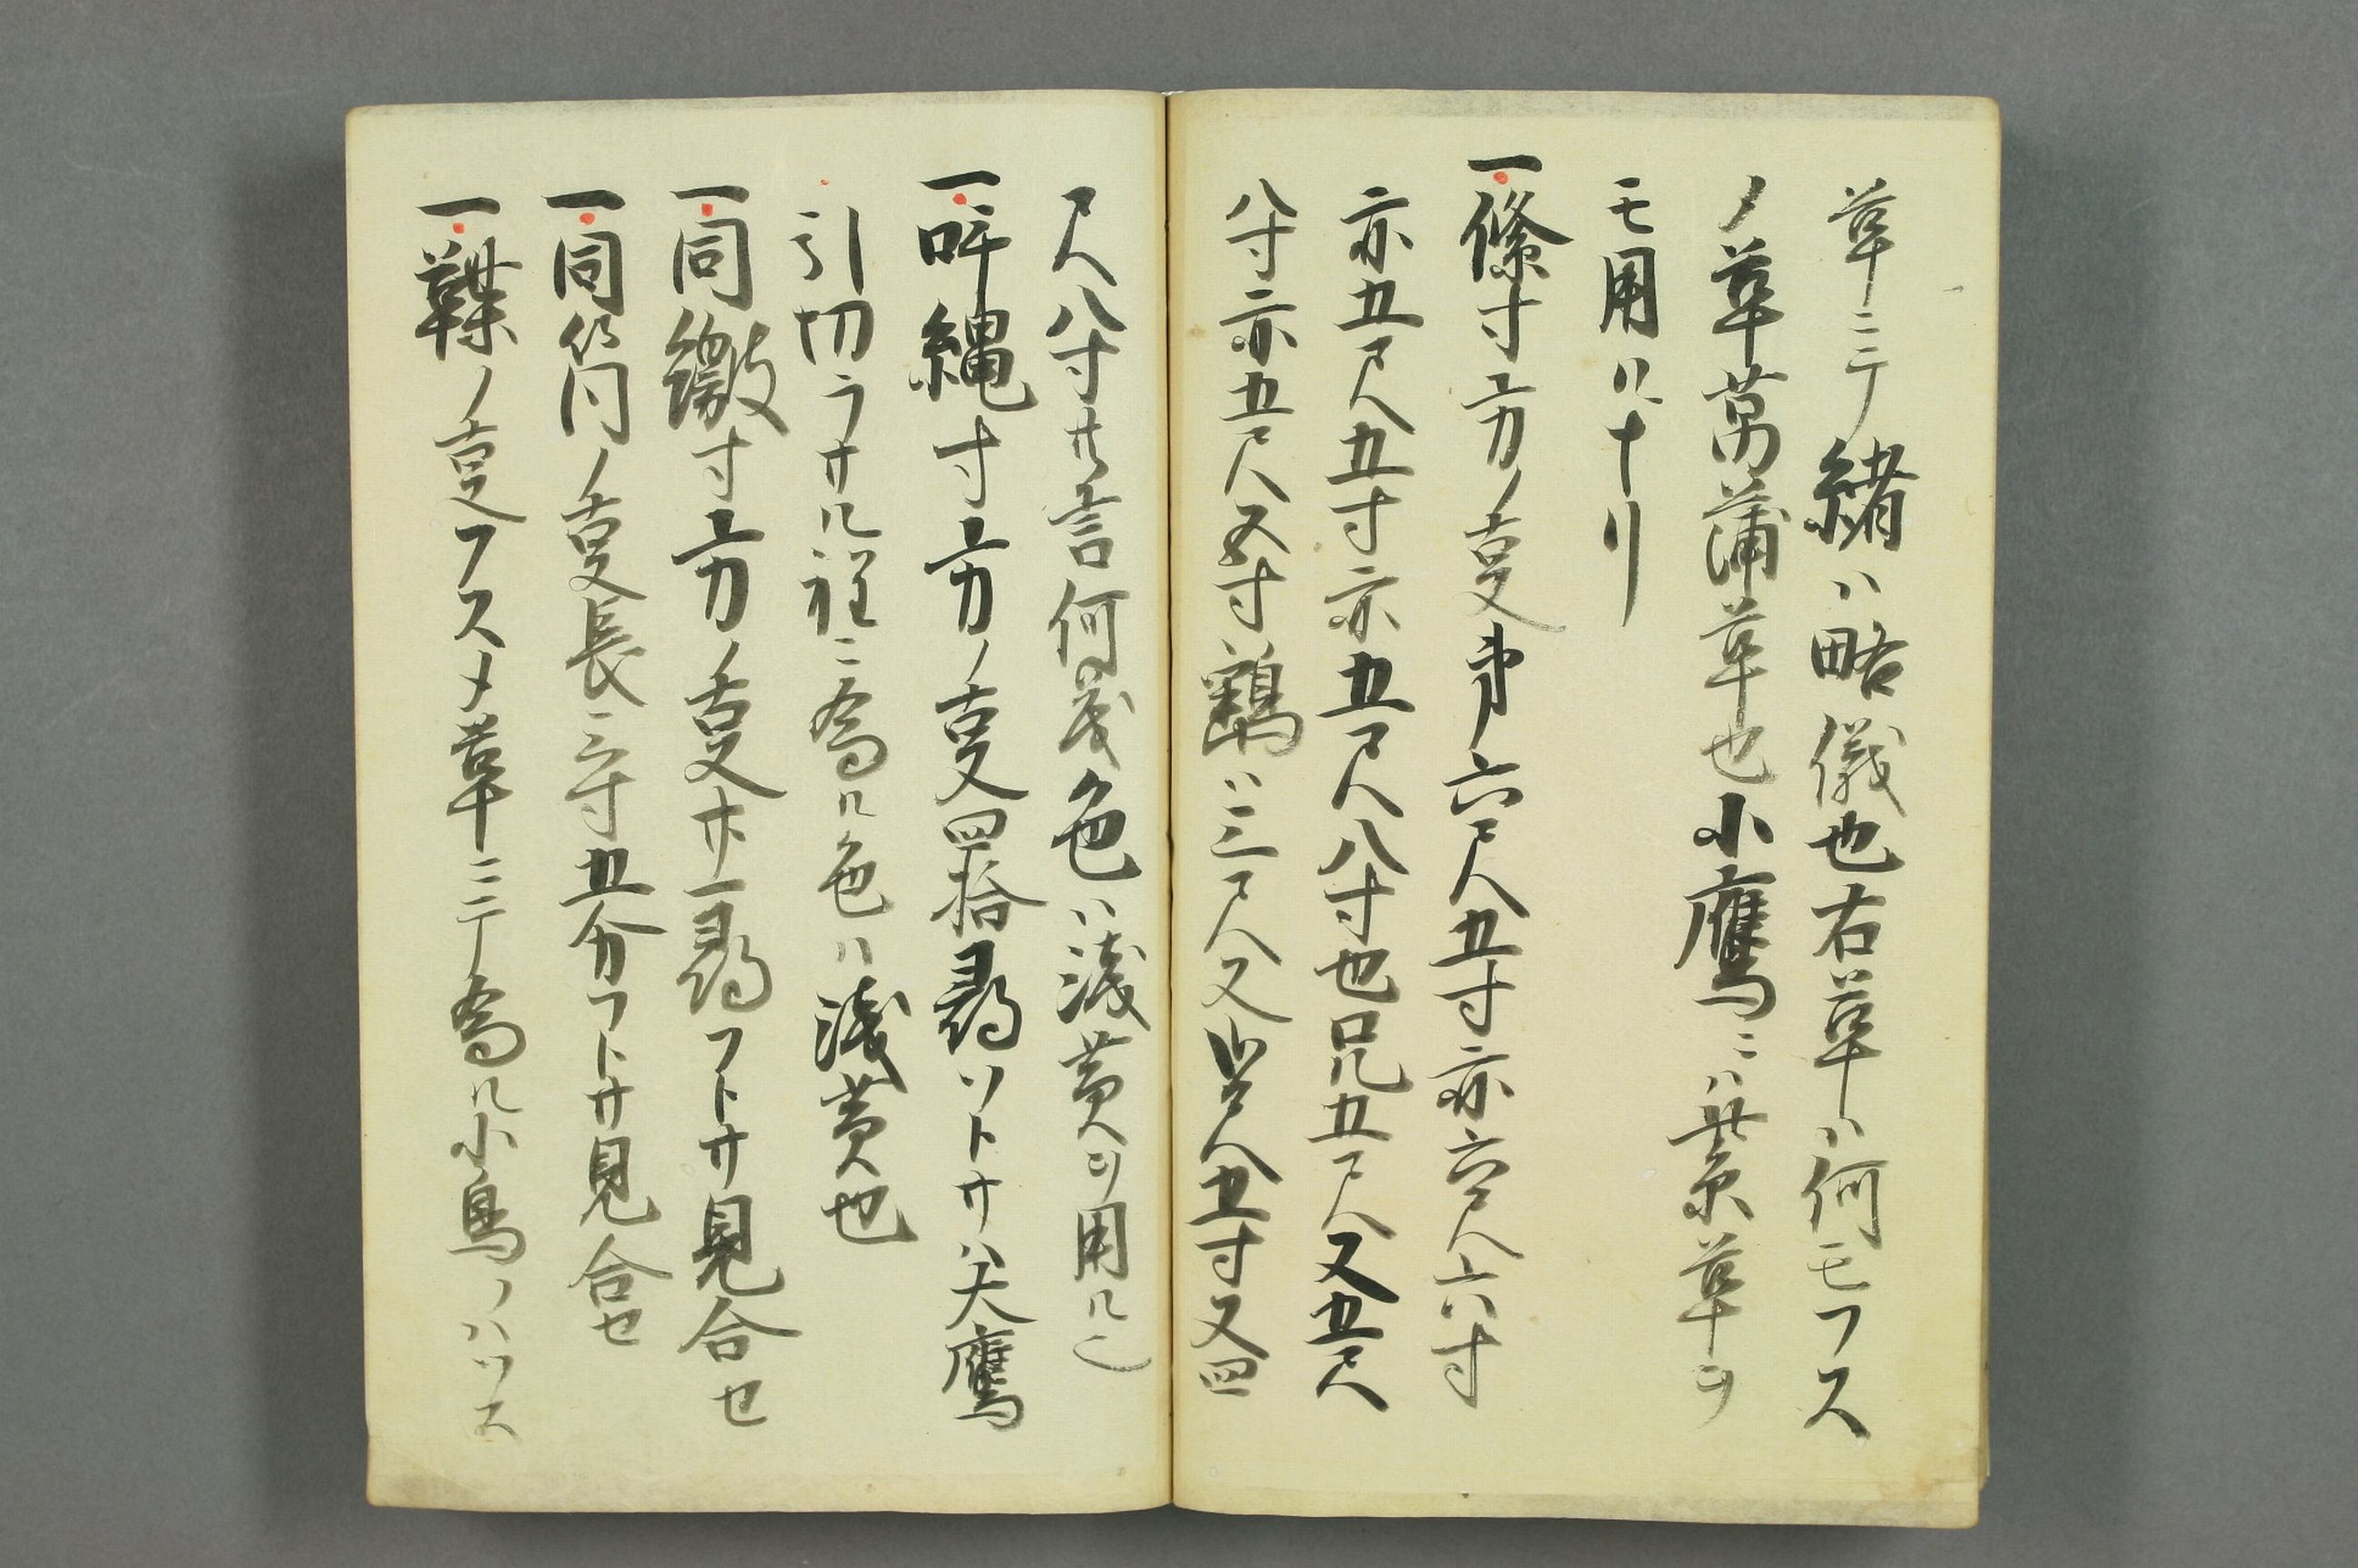 草ニテ緒ハ略儀也右草ハ何モフス
ノ草菖蒲草也小鷹ニハ紫草ヲ
モ用ルナリ
一絛寸方ノ叓弟六尺五寸亦六尺六寸
亦五尺五寸亦五尺八寸也兄五尺又五尺
八寸亦五尺又寸鷂ハ三尺又 尺五寸又四
尺八寸共言何茂色ハ浅黄ヲ用ル也
一呼縄寸方ノ叓四拾尋ソトサハ大鷹
引切ラサル程ニ為ル色ハ浅黄也
一同繳寸方ノ叓廿一尋フトサ見合セ
一同筒ノ叓長三寸五分フトサ見合セ
一鞢ノ叓フスメ草ニテ為ル小鳥ノハツス